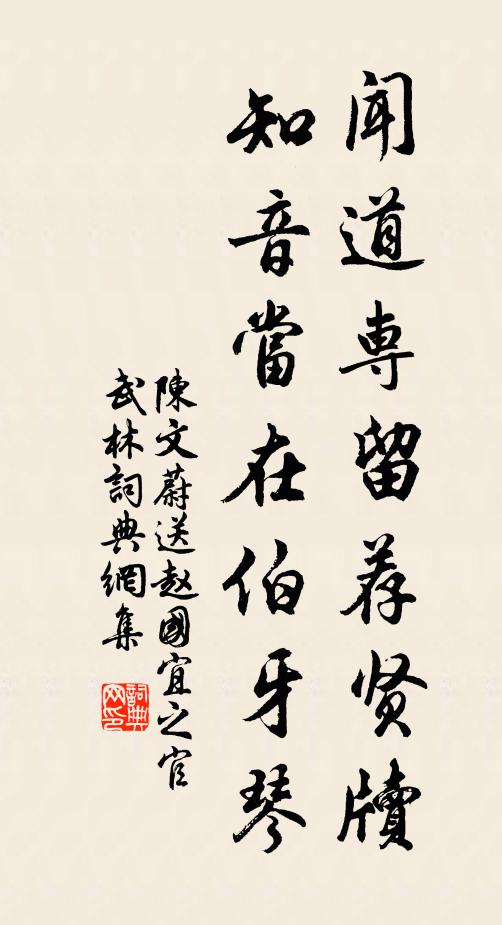 闻道専留荐贤牍
知音當在伯牙琴
陳文蔚送赵國宜之官
武林詞典網集
詞典网印